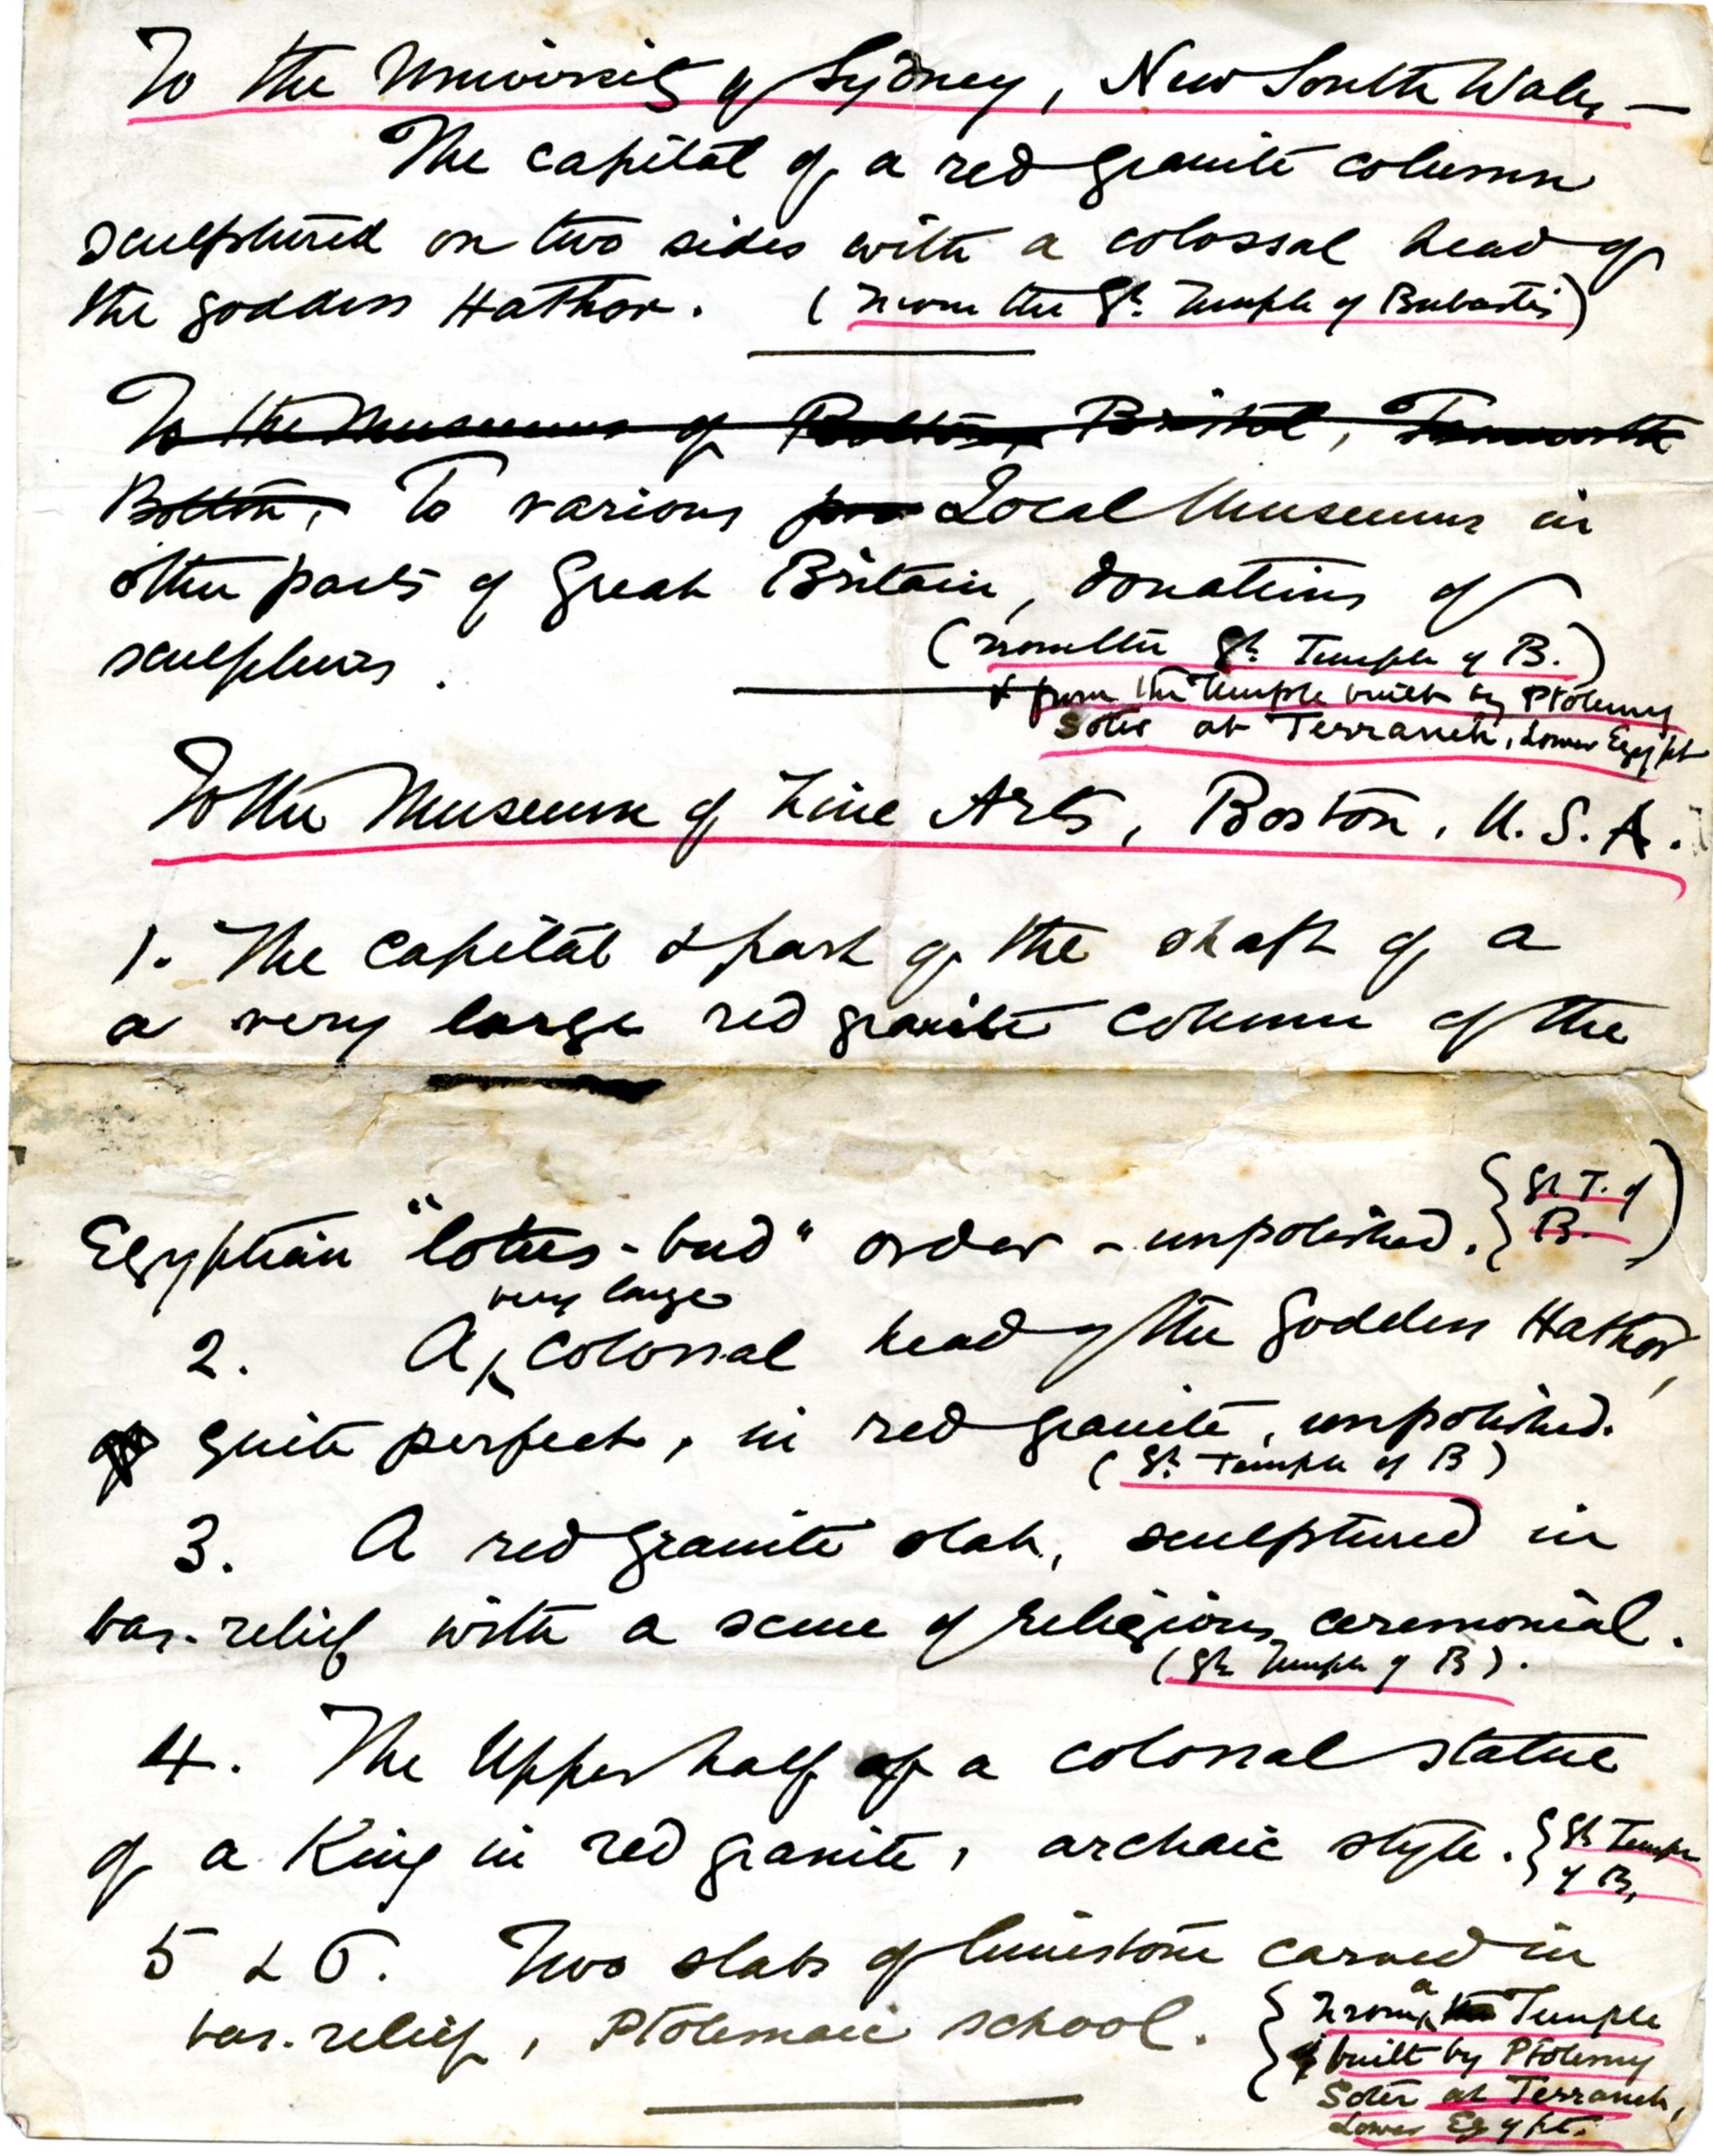 To the University of Sydney, New South Wales —
The capital of a red granite column
sculptured on two sides with a colossal head of
the goddess Hathor. (From the Gt. Temple of Bubastis)
To the Museums of Bolton, Bristol, Tamworth
Bolton, To various pro Local Museums in
other parts of Great Britain, donations of
sculptures.
(From the Gt. Temple of B.)
& from the Temple built by Ptolemy
Soter at Terraneh, Lower Egypt
To the Museum of Fine Arts, Boston, U.S.A.
1. The capital & part of the shaft of a
a very large red granite column of the
Egyptian "lotus-bud" order - unpolished. {Gt T. of
B.)
very large
2. A colossal head of the Goddess Hathor,
quite perfect, in red granite, unpolished.
(Gt. Temple of B)
3. A red granite slab, sculptured in
bas-relief with a scene of religious ceremonial.
(Gt. Temple of B).
4. The Upper half of a colossal statue
of a King in red granite, archaic style. {Gt Temple
of B.
5 & 6. Two slabs of limestone carved in
bas-relief, Ptolemaic school.
{From a the Temple
built by Ptolemy
Soter at Terraneh,
Lower Egypt.